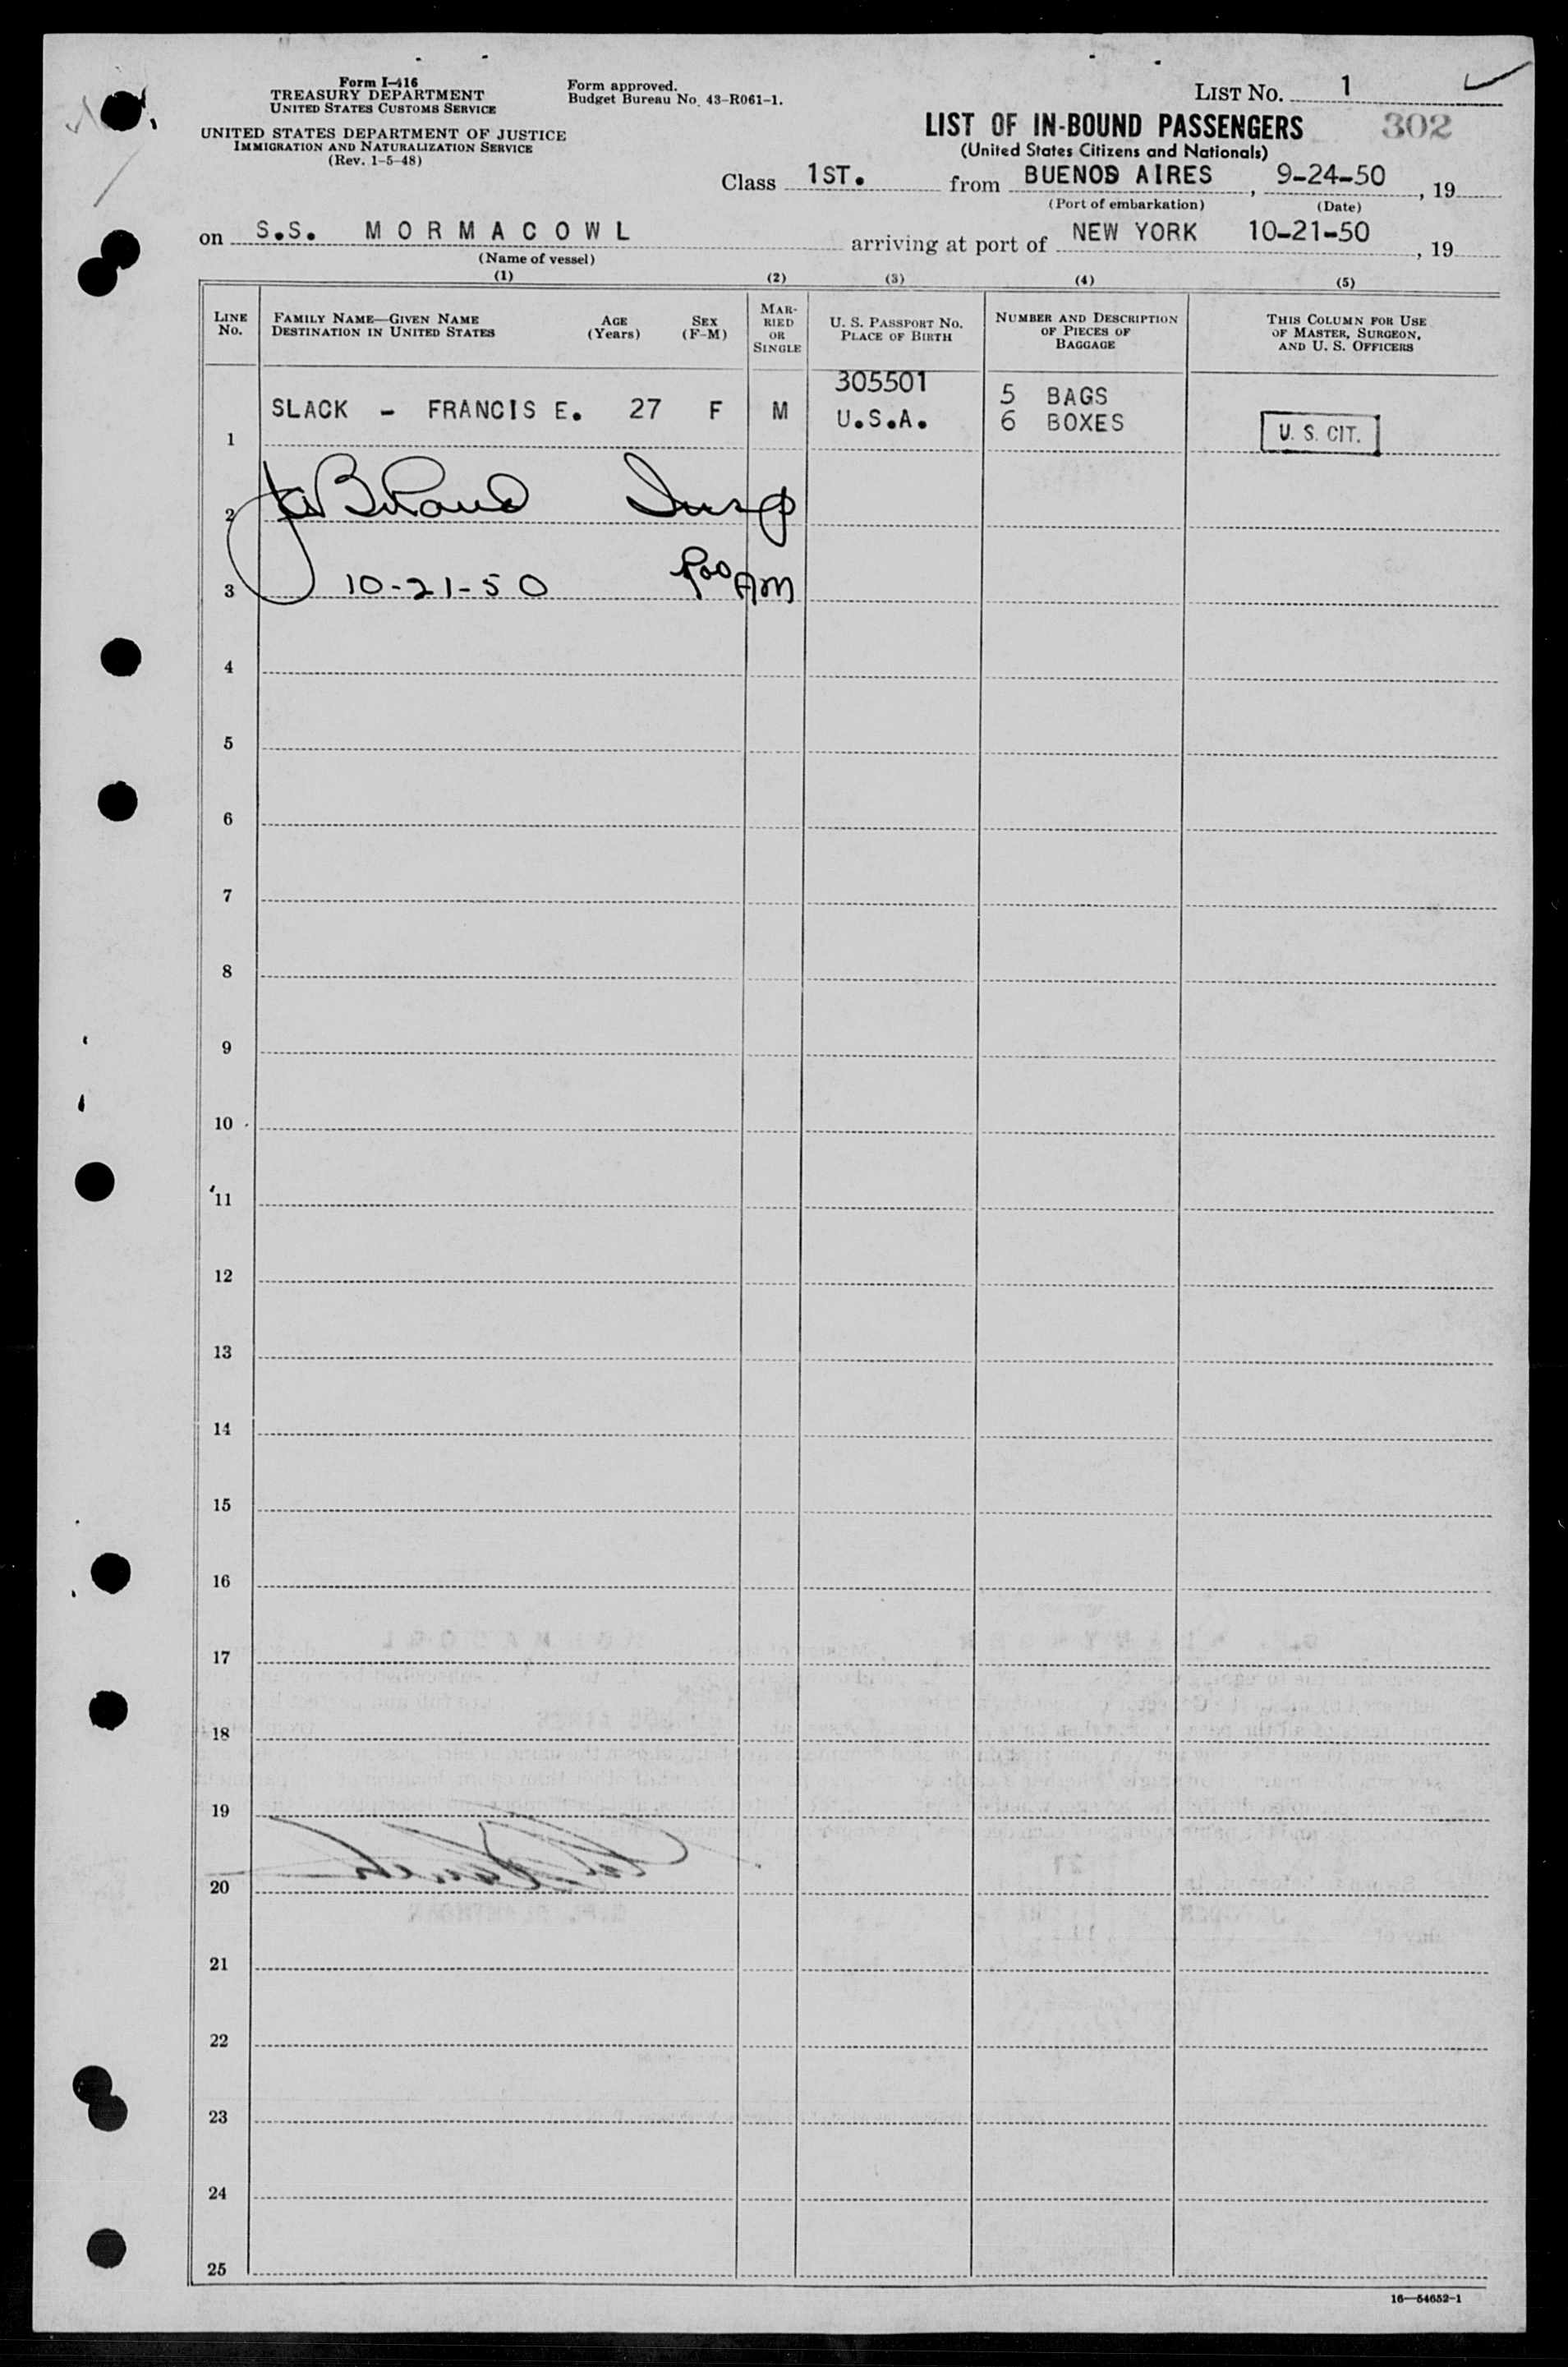 Form I-416
TREASURY DEPARTMENT
UNITED STATES CUSTOMS SERVICE
UNITED STATES DEPARTMENT OF JUSTICE
IMMIGRATION AND NATURALIZATION SERVICE
(Rev. 1-5-48)
Form approved.
Budget Bureau No. 43-R061-1.
LIST NO. 1
LIST OF IN-BOUND PASSENGERS 302
(United States Citizens and Nationals)
Class 1ST. from BUENOS AIRES, 9-24-50, 19
(Port of embarkation) (Date)
on S.S. MORMACOWL arriving at port of NEW YORK 10-21-50, 19
(Name of vessel)
(1) (2) (3) (4) (5)
LINE No.
FAMILY NAME—GIVEN NAME
DESTINATION IN UNITED STATES
AGE (Years)
SEX (F-M)
MARRIED OR SINGLE
U. S. PASSPORT NO.
PLACE OF BIRTH
NUMBER AND DESCRIPTION OF PIECES OF BAGGAGE
THIS COLUMN FOR USE OF MASTER, SURGEON, AND U. S. OFFICERS
1 SLACK - FRANCIS E. 27 F M 305501 U.S.A. 5 BAGS 6 BOXES U. S. CIT.
2 Insp
3 10-21-50 AM
4
5
6
7
8
9
10
11
12
13
14
15
16
17
18
19
20
21
22
23
24
25
16—54652-1